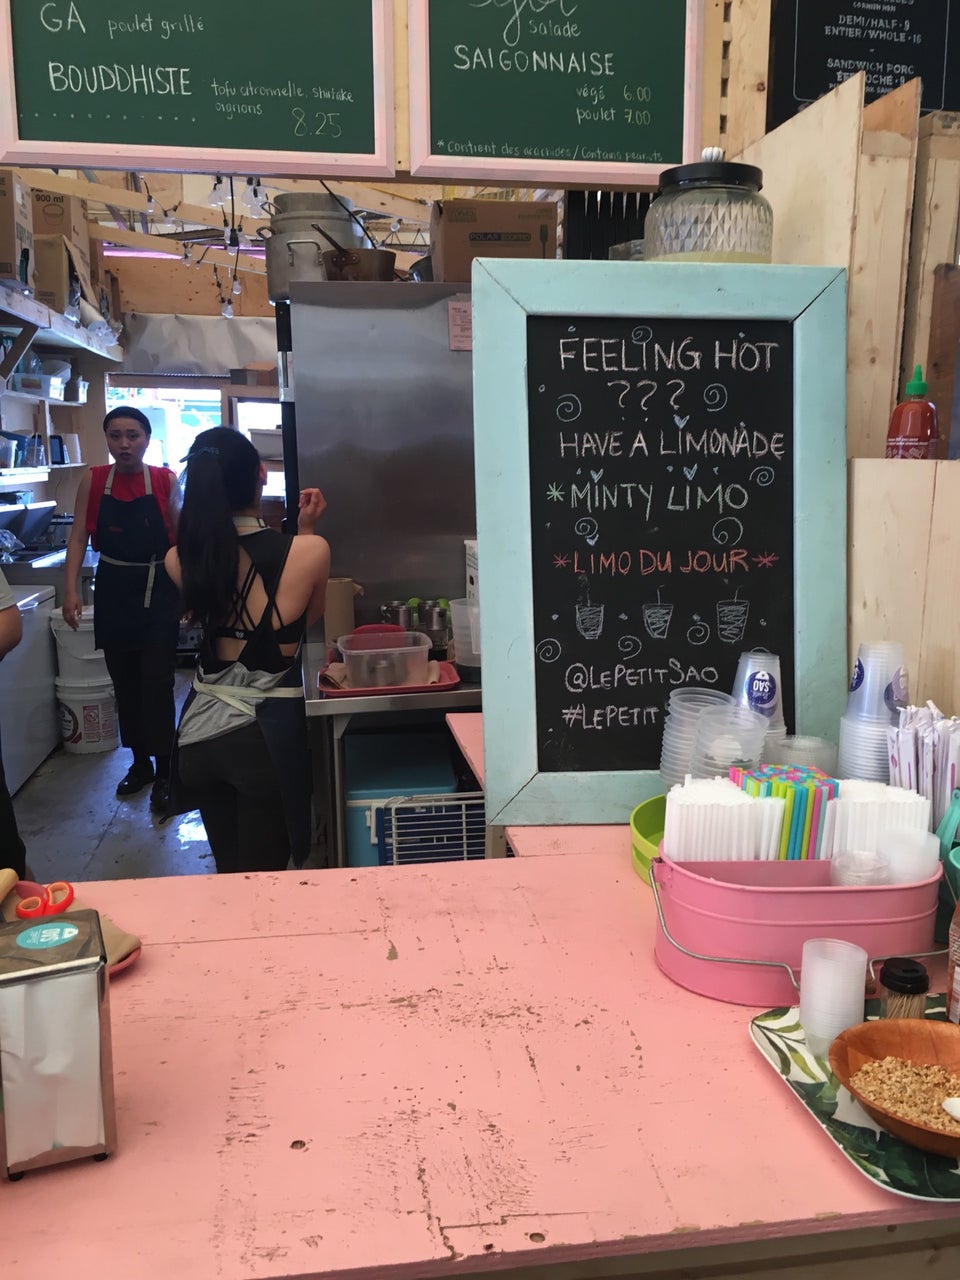 GA poulet grillé
BOUDDHISTE tofu citronnelle, shiitake
oignons
8.25
salade
SAIGONNAISE
végé 6.00
poulet 7.00
* Contient des arachides / Contains peanuts
CORNISH HEN
DEMI/HALF · 9
ENTIER/WHOLE · 16
SANDWICH PORC
900 ml
FEELING HOT
???
HAVE A LIMONADE
*MINTY LIMO
*LIMO DU JOUR*
@LEPETITSAO
#LEPETIT
SAO